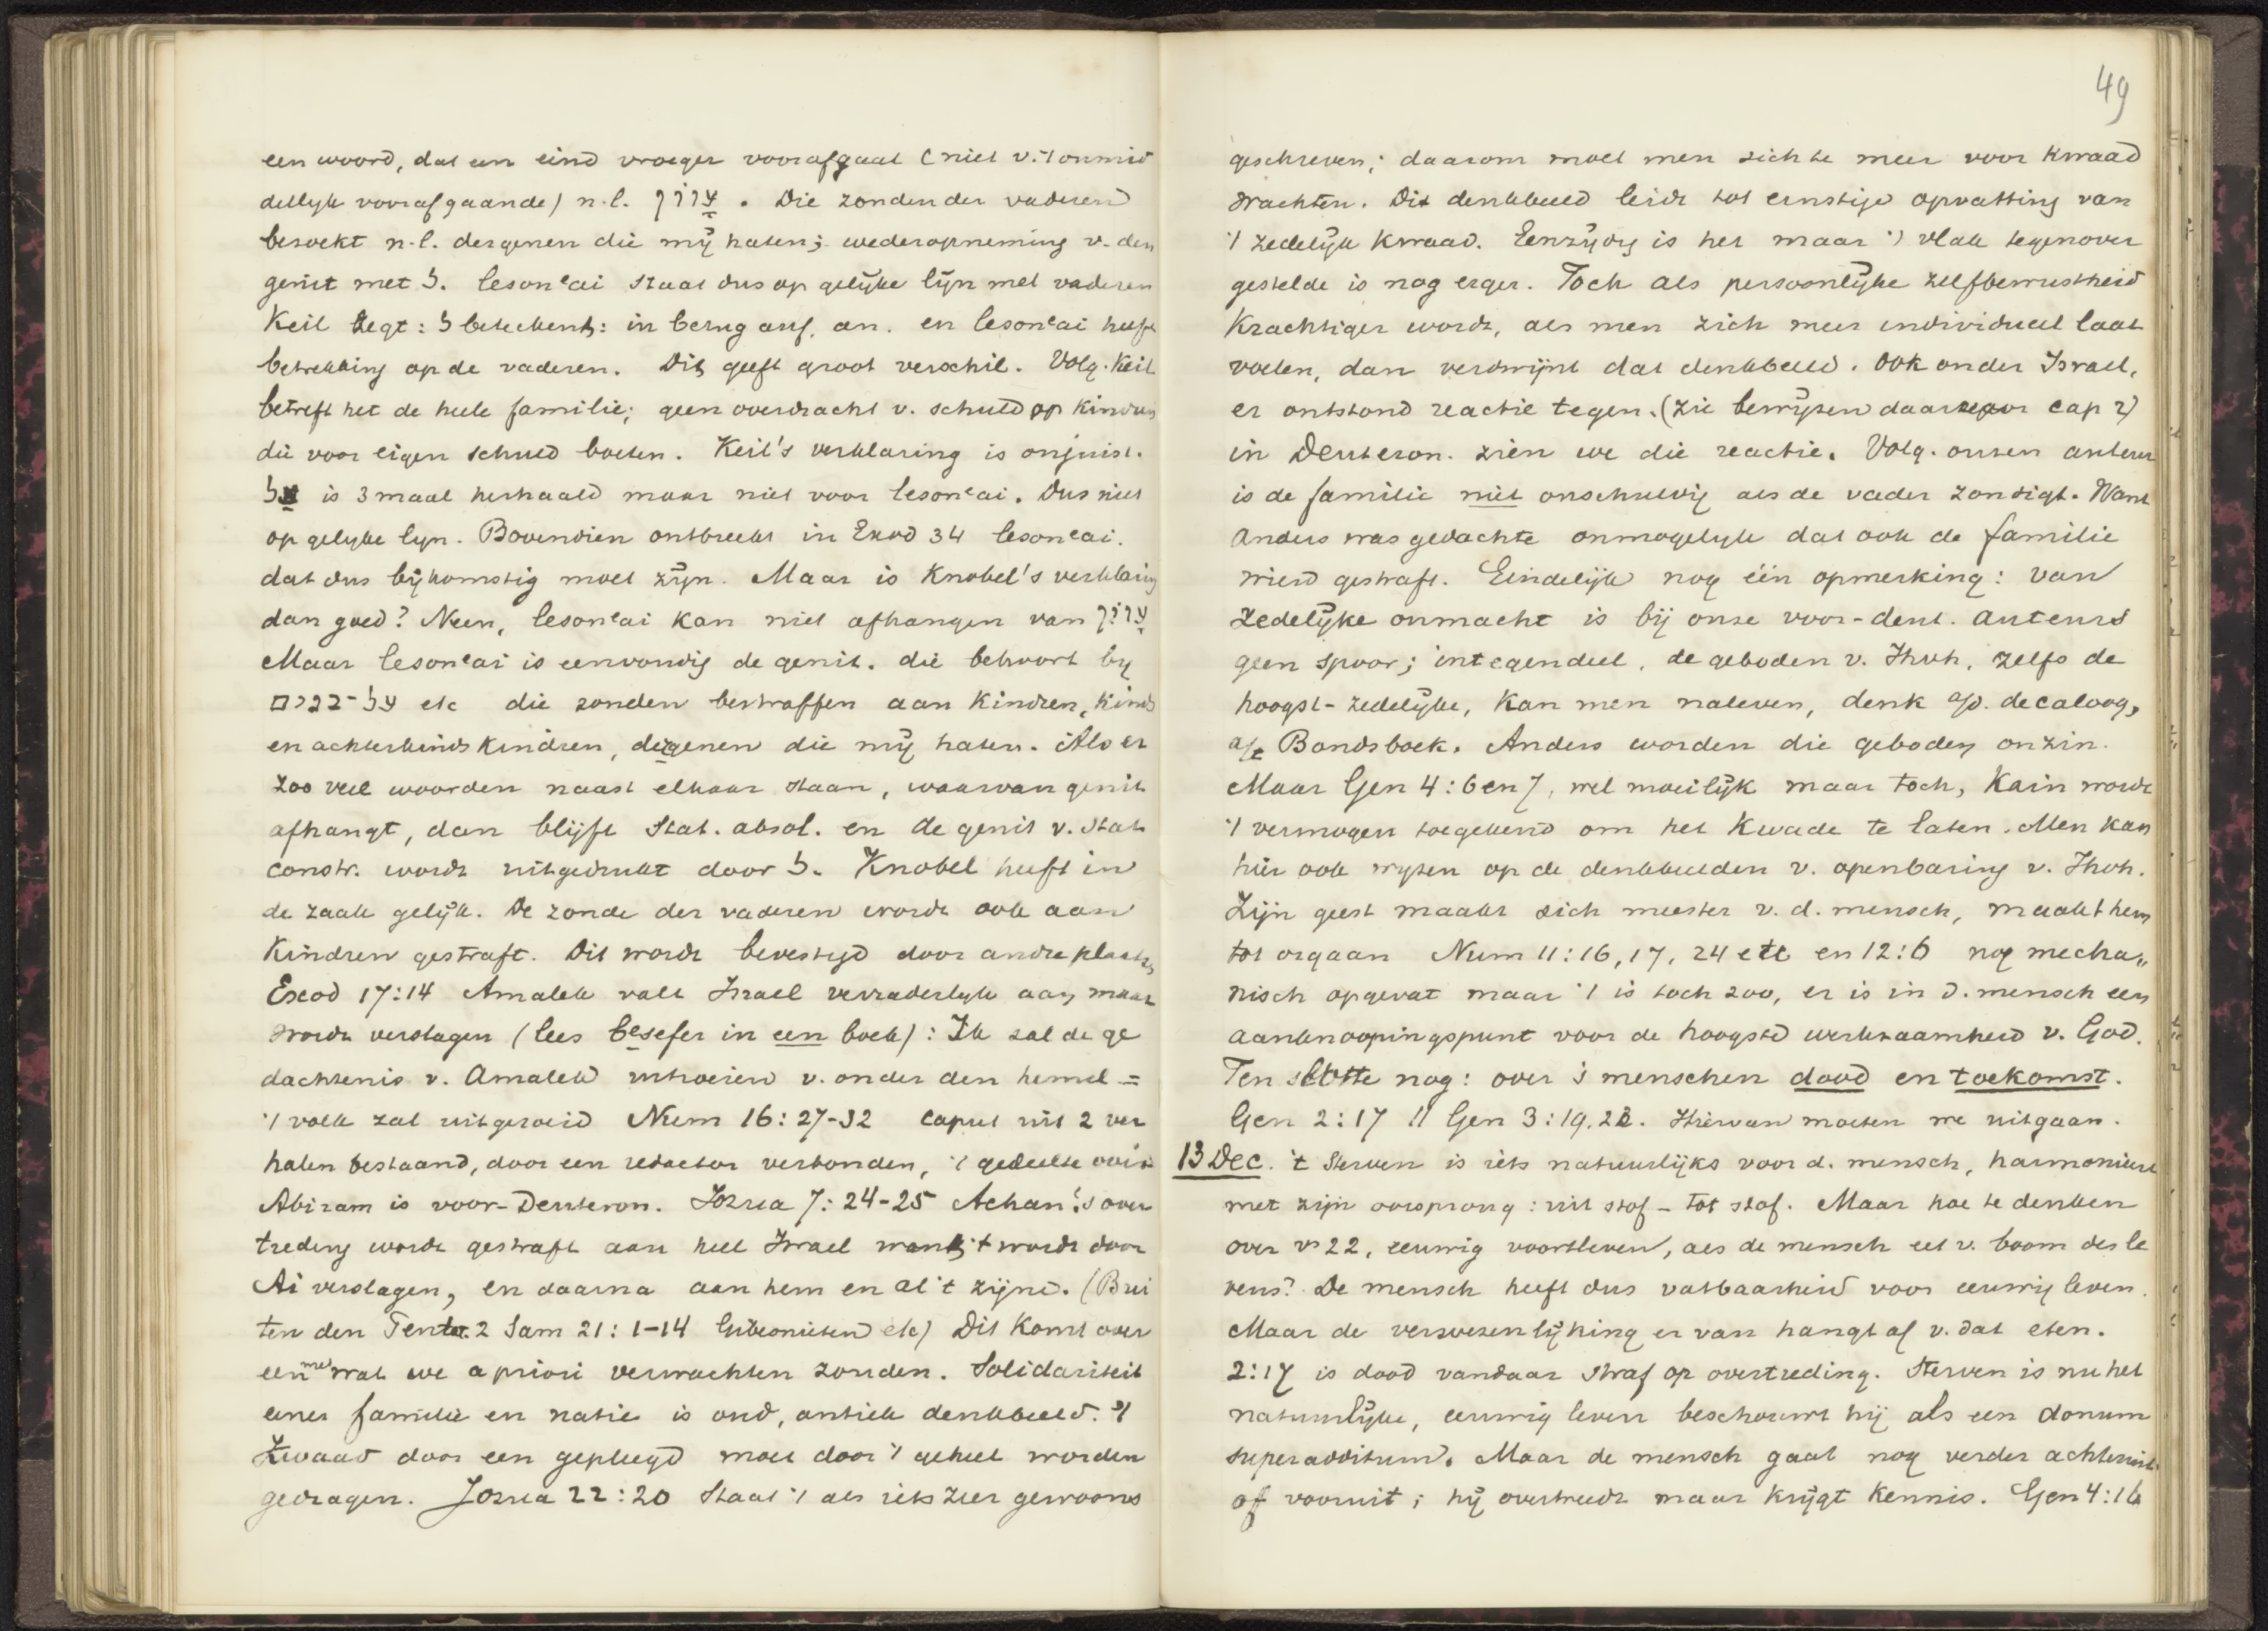 een woord, dat een eind vroeger voorafgaat (niet v. 't onmid
dellijk voorafgaande) n.l. עֲוֹן. Die zonden der vaderen
bezoekt n.l. dergenen die mij haten; wederopneming v. den
genit met ל. lesonʿai staat dus op gelijke lijn met vaderen
Keil zegt: ל beteekent: in bezug auf, an. en lesonʿai heeft
betrekking op de vaderen. Dit geeft groot verschil. Volg. Keil
betreft het de heele familie; geen overdracht v. schuld op kindren
die voor eigen schuld boeten. Keil's verklaring is onjuist.
על is 3 maal herhaald maar niet voor lesonʿai. Dus niet
op gelijke lijn. Bovendien ontbreekt in Exod 34 lesonʿai.
dat dus bijkomstig moet zijn. Maar is Knobel's verklaring
dan goed? Neen, lesonʿai kan niet afhangen van עֲוֹן
Maar lesonʿai is eenvoudig de genit. die behoort bij
על-בנים etc die zonden bestraffen aan kindren, kinds
en achterkindskindren, dergenen die mij haten. Als er
zoo veel woorden naast elkaar staan, waarvan genit
afhangt, dan blijft Stat. absol. en de genit v. Stat.
constr. wordt uitgedrukt door ל. Knobel heeft in
de zaak gelijk. De zonde der vaderen wordt ook aan
Kindren gestraft. Dit wordt bevestigd door andre plaatsen
Exod 17:14 Amalek valt Israel verraderlijk aan, maar
wordt verslagen (lees besefer in een boek): Ik zal de ge
dachtenis v. Amalek uitroeien v. onder den hemel =
't volk zal uitgeroeid Num 16: 27-32 caput uit 2 ver
halen bestaand, door een redactor verbonden, 't gedeelte over
Abiram is voor-Deuteron. Jozua 7: 24-25 Achan's over
treding wordt gestraft aan heel Israel want 't wordt door
Ai verslagen, en daarna aan hem en al 't zijne. (Bui
ten den Tent. 2 Sam 21: 1-14 Gibeonieten etc) Dit komt over
een met wat we a priori verwachten zouden. Solidariteit
eener familie en natie is oud, antiek denkbeeld. 't
Kwaad door een gepleegd moet door 't geheel worden
gedragen. Jozua 22:20 Staat 't als iets zeer gewoons
49
geschreven; daarom moet men zich te meer voor kwaad
wachten. Dit denkbeeld leidt tot ernstige opvatting van
't zedelijk kwaad. Eenzijdig is het maar 't vlak tegenover
gestelde is nog erger. Toch als persoonlijke zelfbewustheid
krachtiger wordt, als men zich meer individueel laat
voelen, dan verdwijnt dat denkbeeld. Ook onder Israel,
er ontstond reactie tegen. (zie bewijzen daarvoor cap 2)
in Deuteron. zien we die reactie. Volg. onzen auteur
is de familie niet onschuldig als de vader zondigt. Want
Anders was gedachte onmogelijk dat ook de familie
wierd gestraft. Eindelijk nog één opmerking: van
zedelijke onmacht is bij onze voor-deut. auteurs
geen spoor; integendeel, de geboden v. Jhvh, zelfs de
hoogst-zedelijke, kan men naleven, denk a/d. decaloog,
a/h Bondsboek. Anders worden die geboden onzin.
Maar Gen 4: 6 en 7, wel moeilijk maar toch, Kain wordt
't vermogen toegekend om het kwade te laten. Men kan
hier ook wijzen op de denkbeelden v. openbaring v. Jhvh.
Zijn geest maakt zich meester v. d. mensch, maakt hem
tot orgaan Num 11: 16, 17, 24 etc en 12:6 nog mecha„
nisch opgevat maar 't is toch zoo, er is in d. mensch een
aanknoopingspunt voor de hoogste werkzaamheid v. God.
Ten slotte nog: over 's menschen dood en toekomst.
Gen 2:17 // Gen 3:19, 22. Hiervan moeten we uitgaan.
13 Dec. 't Sterven is iets natuurlijks voor d. mensch, harmonieert
met zijn oorsprong: uit stof - tot stof. Maar hoe te denken
over vs 22, eeuwig voortleven, als de mensch eet v. boom des le
vens? De mensch heeft dus vatbaarheid voor eeuwig leven.
Maar de verwezenlijking er van hangt af v. dat eten.
2:17 is dood vandaar straf op overtreding. Sterven is nu het
natuurlijke, eeuwig leven beschouwt hij als een donum
superadditum. Maar de mensch gaat nog verder achteruit
of vooruit; hij overtreedt maar krijgt kennis. Gen 4:16